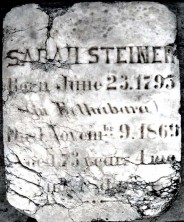 SARAH STEINER
Born June 23. 1795
(in
Novem 9. 1869
Aged 73 years 4 mo